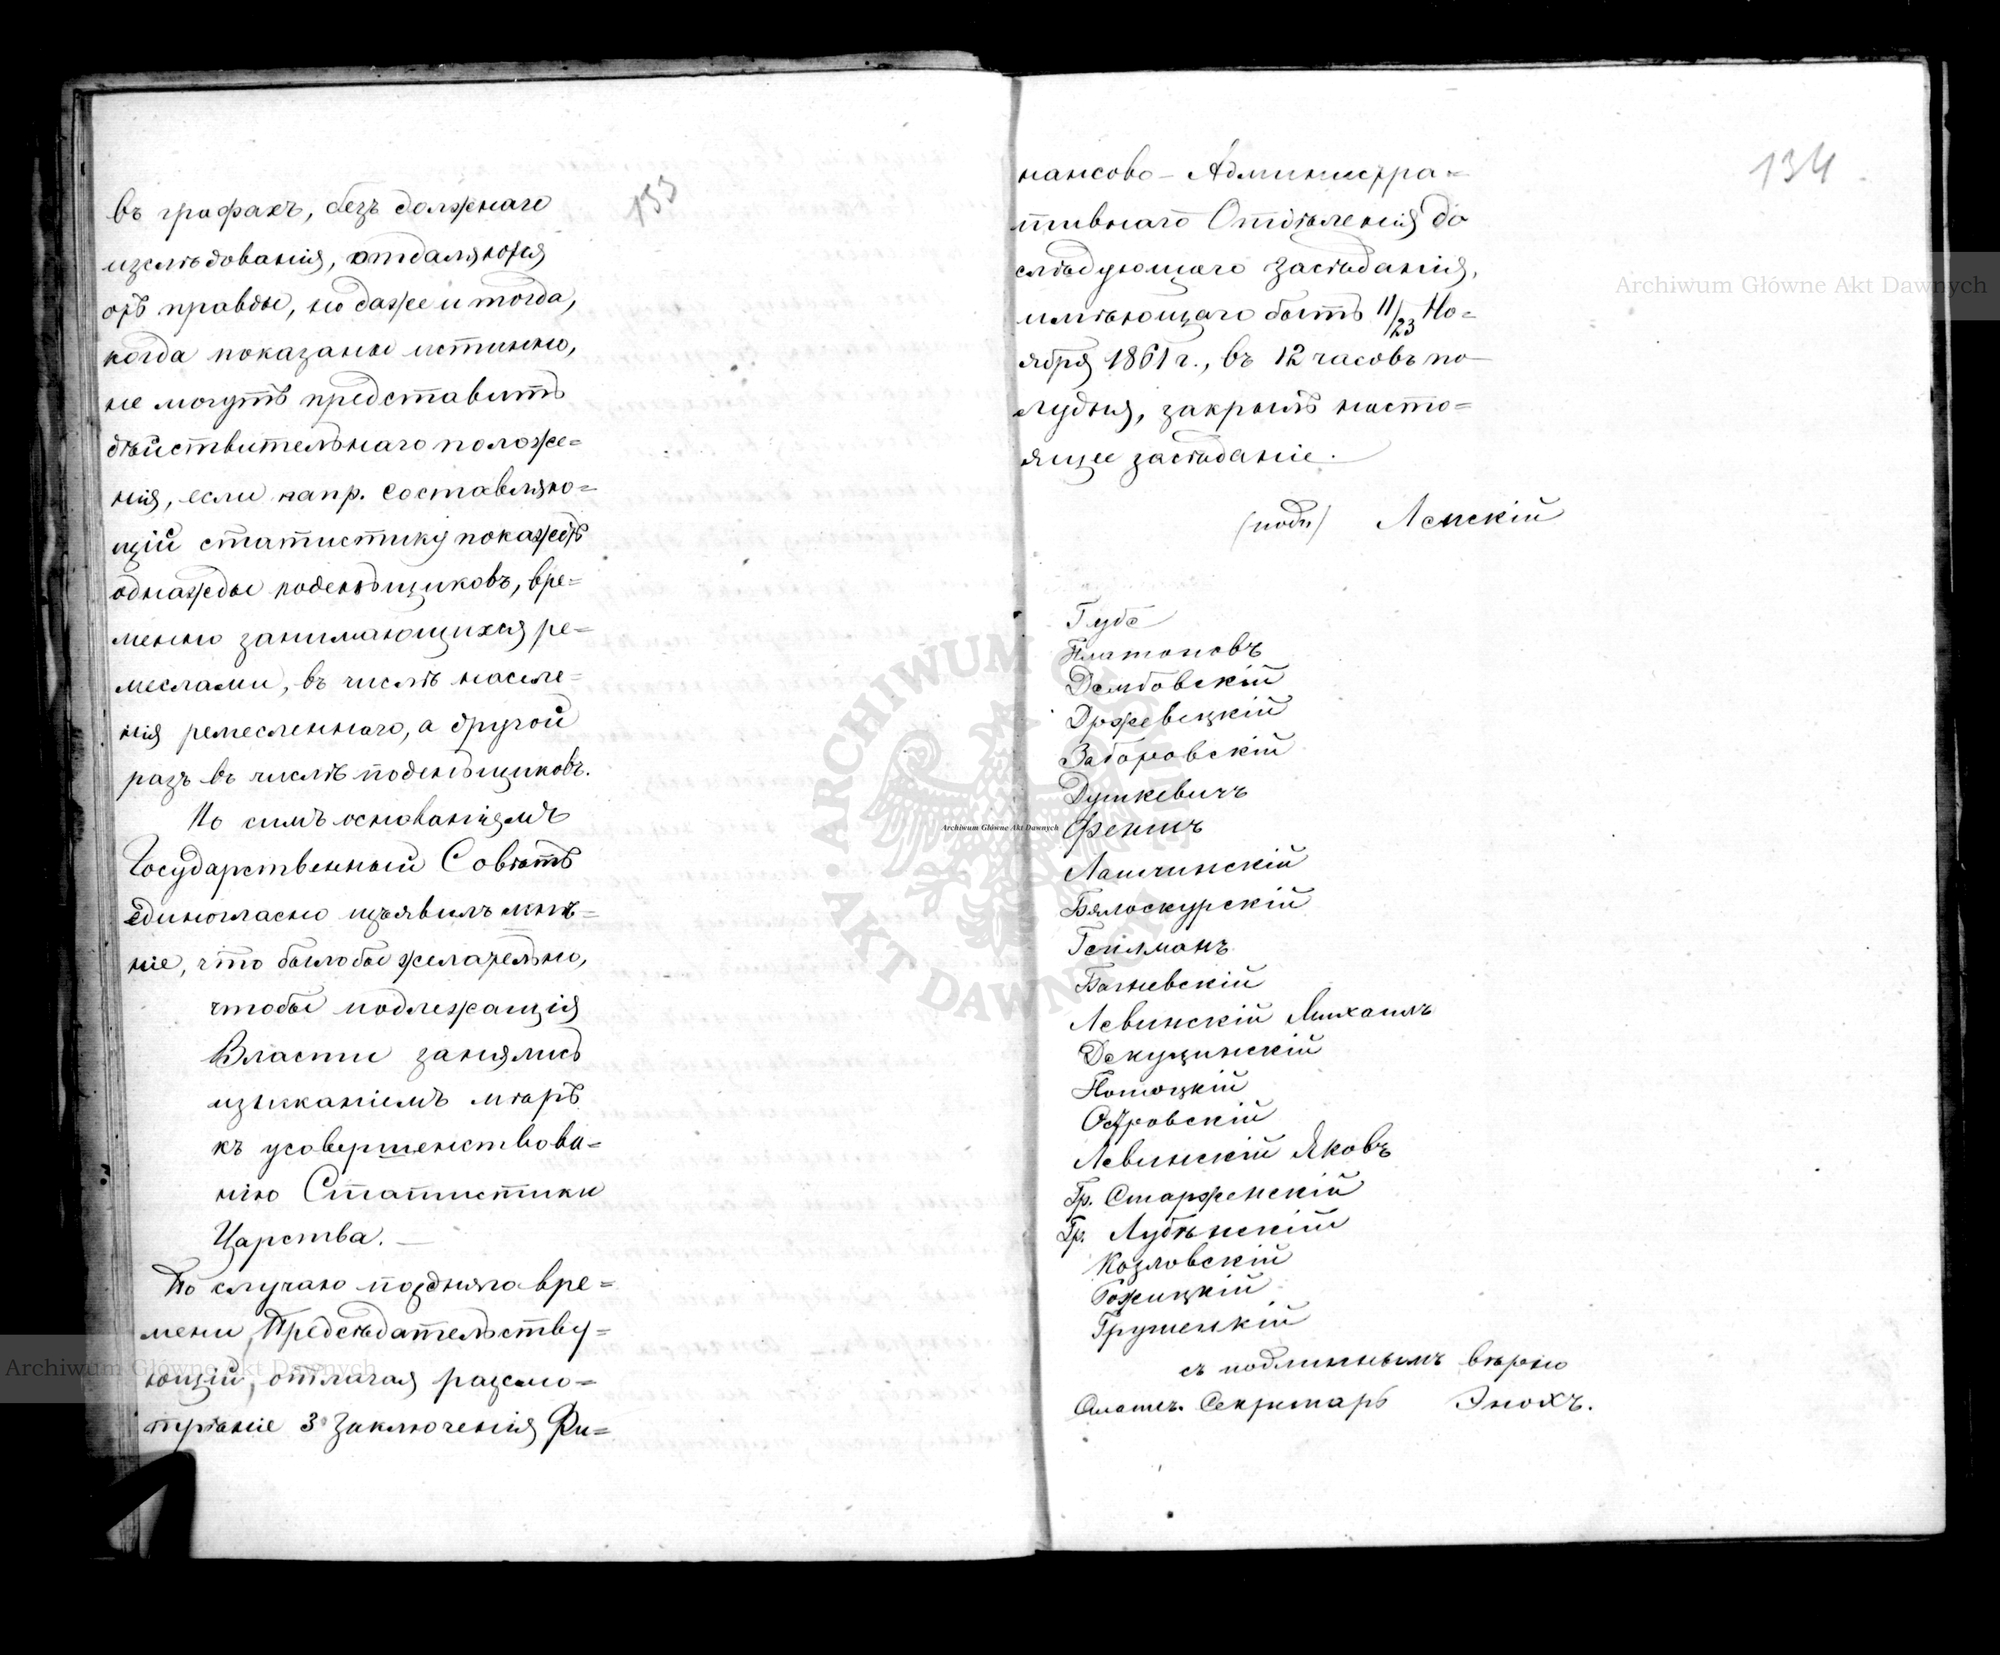 133
въ графахъ, безъ должнаго
изслѣдованія, отдаляются
отъ правды, но даже и тогда,
когда показаны истинно,
не могутъ представить
дѣйствительнаго положе=
нія, если напр. составляю=
щій статистику покажетъ
однажды поденьщиковъ, вре=
менно занимающихся ре=
меслами, въ числѣ населе=
нія ремесленнаго, а другой
разъ въ числѣ поденьщиковъ.
По симъ основаніямъ
Государственный Совѣтъ
единогласно изъявилъ мнѣ=
ніе, что было бы желательно,
чтобы подлежащія
Власти занялись
изысканіемъ мѣръ
къ усовершенствова=
нію Статистики
Царства. —
По случаю поздняго вре=
мени, Предсѣдательству=
ющій, отлагая разсмо=
трѣніе 3º Заключенія Фи=
134
нансово-Администра=
тивнаго Отдѣленія до
слѣдующаго засѣданія,
имѣющаго быть 11/23 Но=
ября 1861 г., въ 12 часовъ по-
лудня, закрылъ насто=
ящее засѣданіе.
(подп) Ленскій
Губе
Платоновъ
Дембовскій
Држевецкій
Заборовскій
Дуткевичъ
Феншъ
Лащинскій
Бялоскурскій
Гейлманъ
Багневскій
Левинскій Михаилъ
Декуцинскій
Потоцкій
Островскій
Левинскій Яковъ
Гр. Старженскій
Гр. Лубѣнскій
Козловскій
Рожицкій
Грушецкій
съ подлиннымъ вѣрно
Статсъ. Секретарь Энохъ.
Archiwum Główne Akt Dawnych
Archiwum Główne Akt Dawnych
Archiwum Główne Akt Dawnych
ARCHIWUM GŁÓWNE AKT DAWNYCH